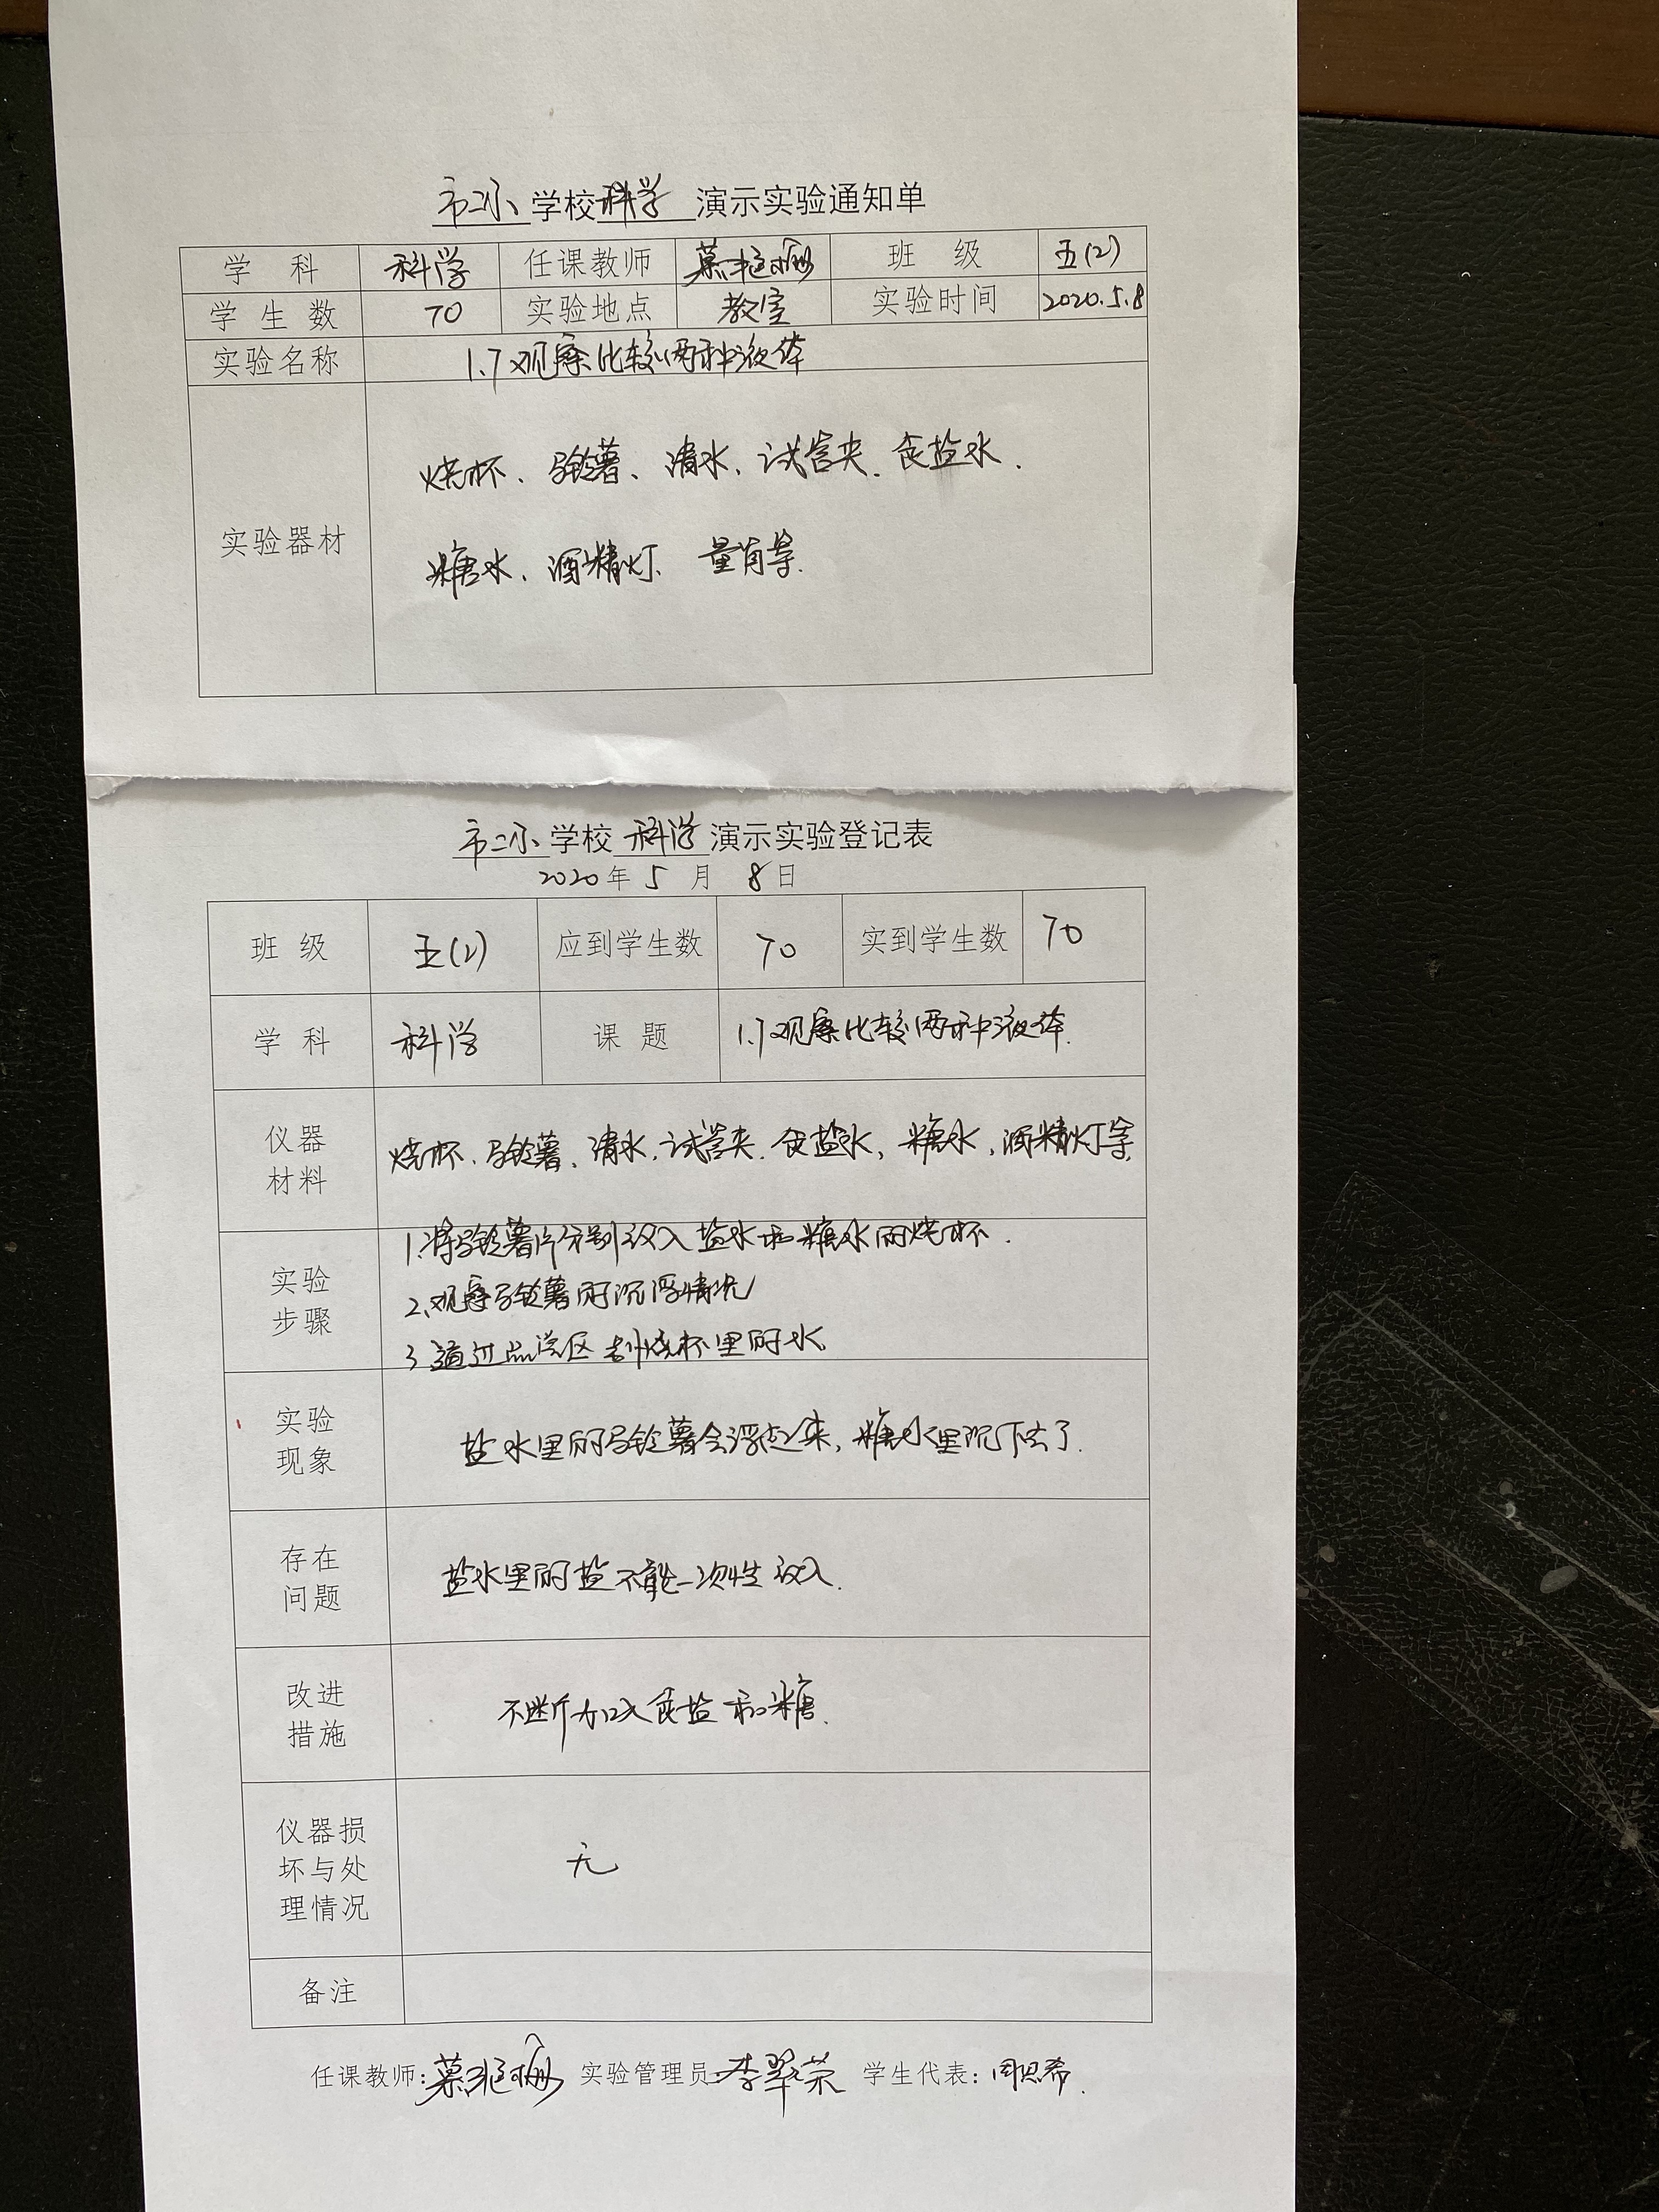 市二小 学校 科学 演示实验通知单
学 科 科学 任课教师 班 级 五(2)
学 生 数 70 实验地点 教室 实验时间 2020.5.8
实验名称 1.7观察比较两种液体
烧杯、马铃薯、清水、试管夹、食盐水、
实验器材
糖水、酒精灯、量筒等.
市二小 学校 科学 演示实验登记表
2020 年 5 月 8 日
班 级 五(2) 应到学生数 70 实到学生数 70
学 科 科学 课 题 1.7观察比较两种液体.
仪器
材料
烧杯、马铃薯、清水、试管夹、食盐水、糖水、酒精灯等.
实验
步骤
1.将马铃薯片分别放入盐水和糖水的烧杯.
2.观察马铃薯的沉浮情况
3 通过 区 烧杯里的水
实验
现象
盐水里的马铃薯会浮起来，糖水里沉下去了.
存在
问题
盐水里的盐不能一次性放入.
改进
措施
不断加入食盐和糖.
仪器损
坏与处
理情况
无
备注
任课教师: 实验管理员:李翠荣 学生代表: